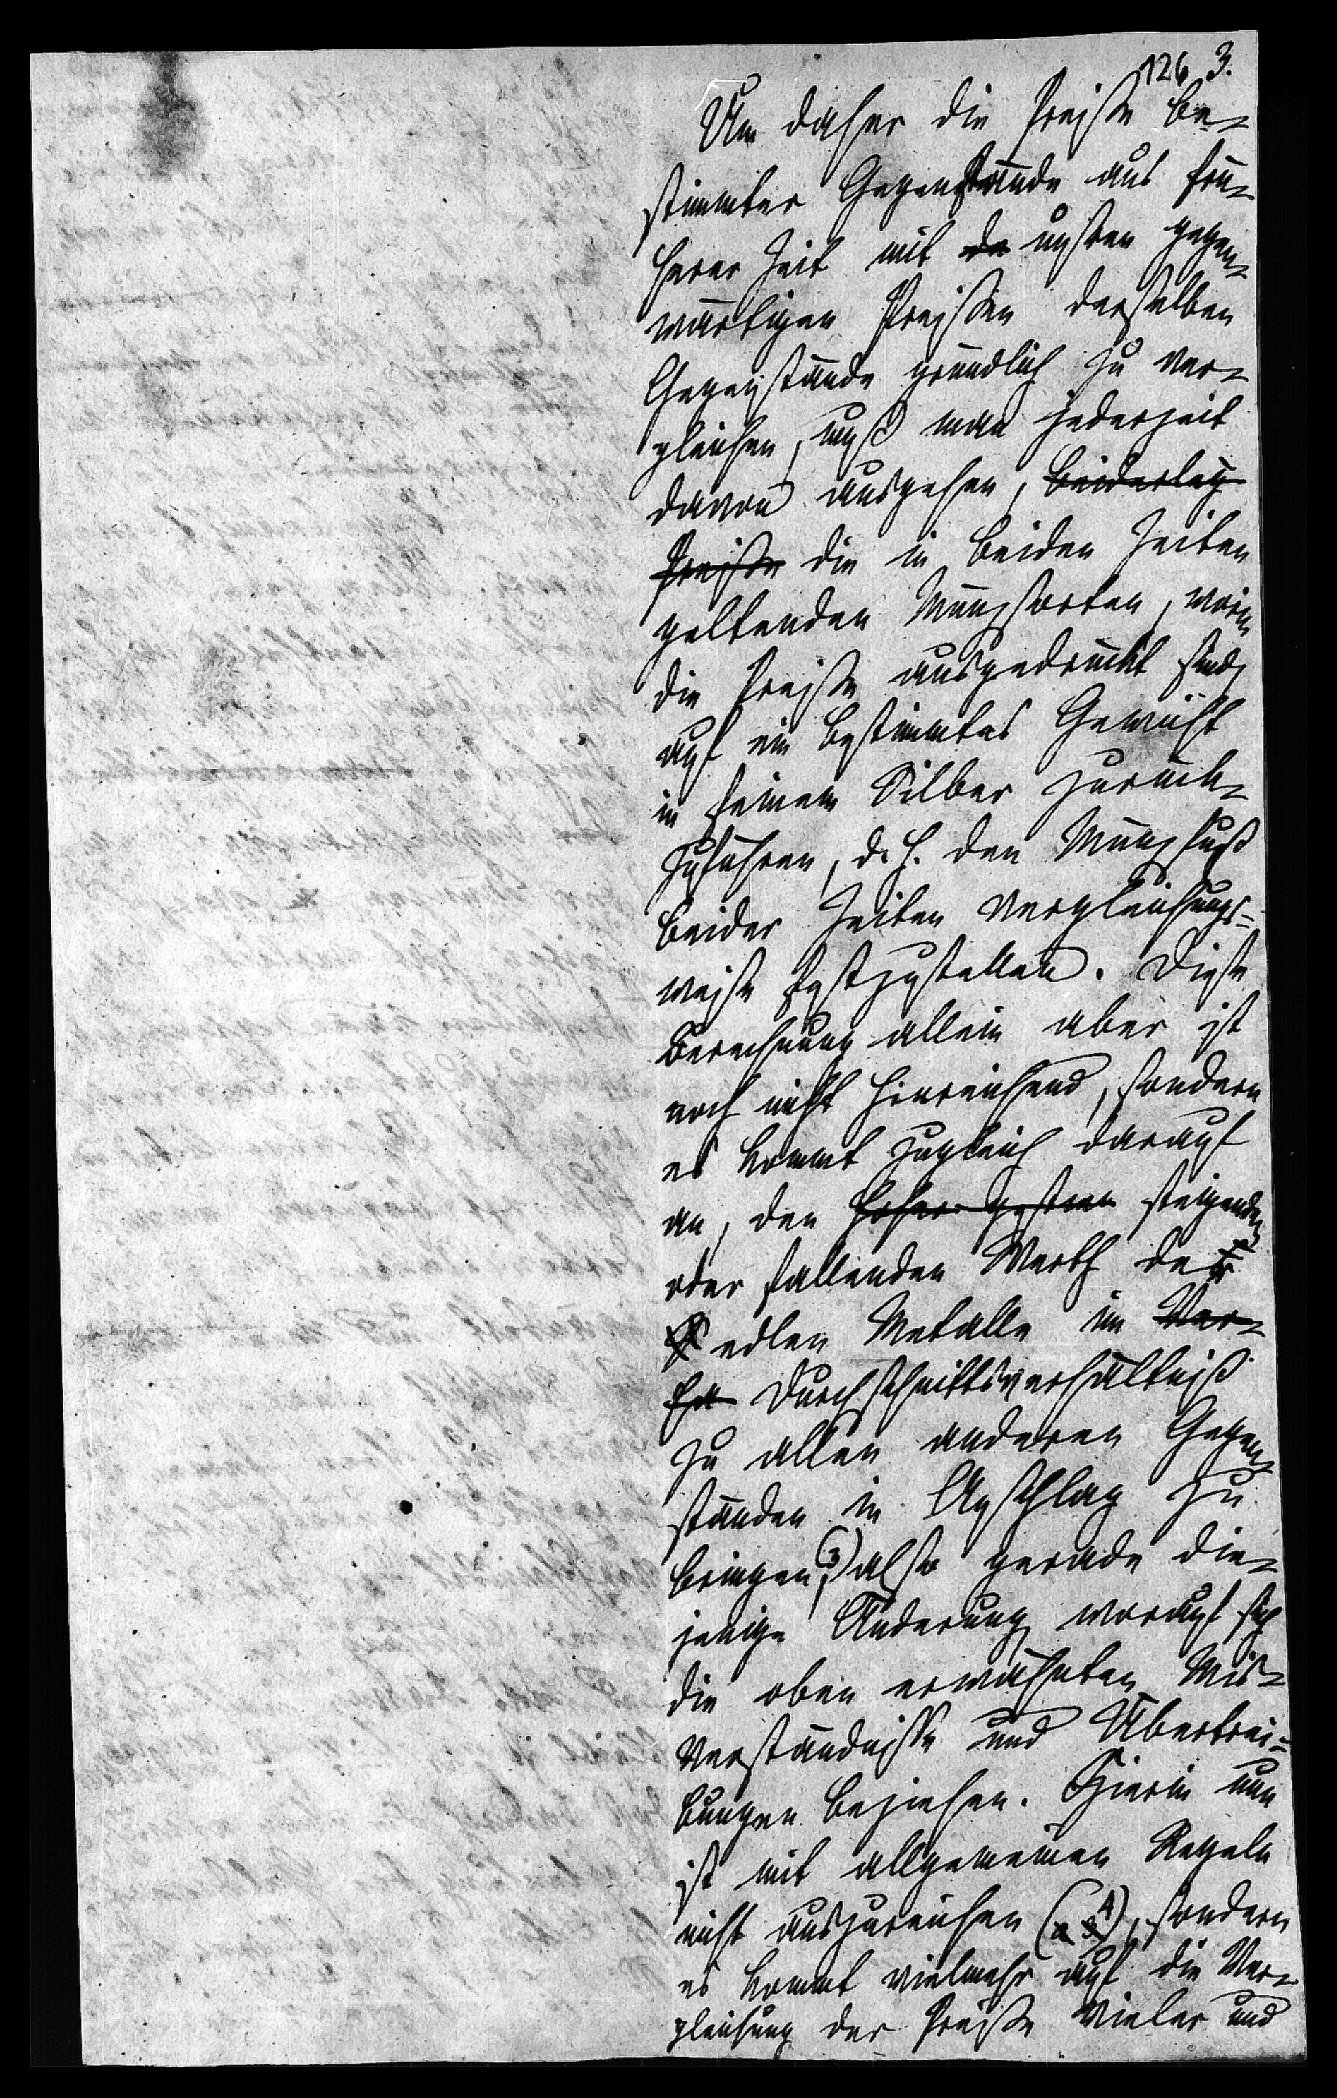 126 3.
Um daher die Preiße be-
stimmter Gegenstände aus frü-
herer Zeit mit de unsren gegen-
wärtigen Preißen derselben
Gegenstände gründlich zu ver-
gleichen, muß man jederzeit
davon ausgehen, beiderley
Preiße die in beiden Zeiten
geltenden Münzsorten, worin
die Preiße ausgedrückt sind,
auf ein bestimmtes Gewicht
in feinem Silber zurück-
zuführen, d. h. den Münzfuß
beider Zeiten vergleichungs-
weise festzustellen. Diese
Berechnung allein aber ist
noch nicht hinreichend, sondern
es kommt zugleich darauf
an, den steigenden
oder fallenden Werth der
edlen Metalle im Ver-
hä Durchschnittsverhältniß
zu allen anderen Gegen-
ständen in Anschlag zu
bringen (3), also gerade die-
jenige Änderung worauf sich
die oben erwähnten Mis-
verständnisse und Übertrei-
bungen beziehen. Hierin nun
ist mit allgemeinen Regeln
nicht auszureichen (a 4), sondern
es kommt vielmehr auf die Ver-
gleichung der Preiße vieler und